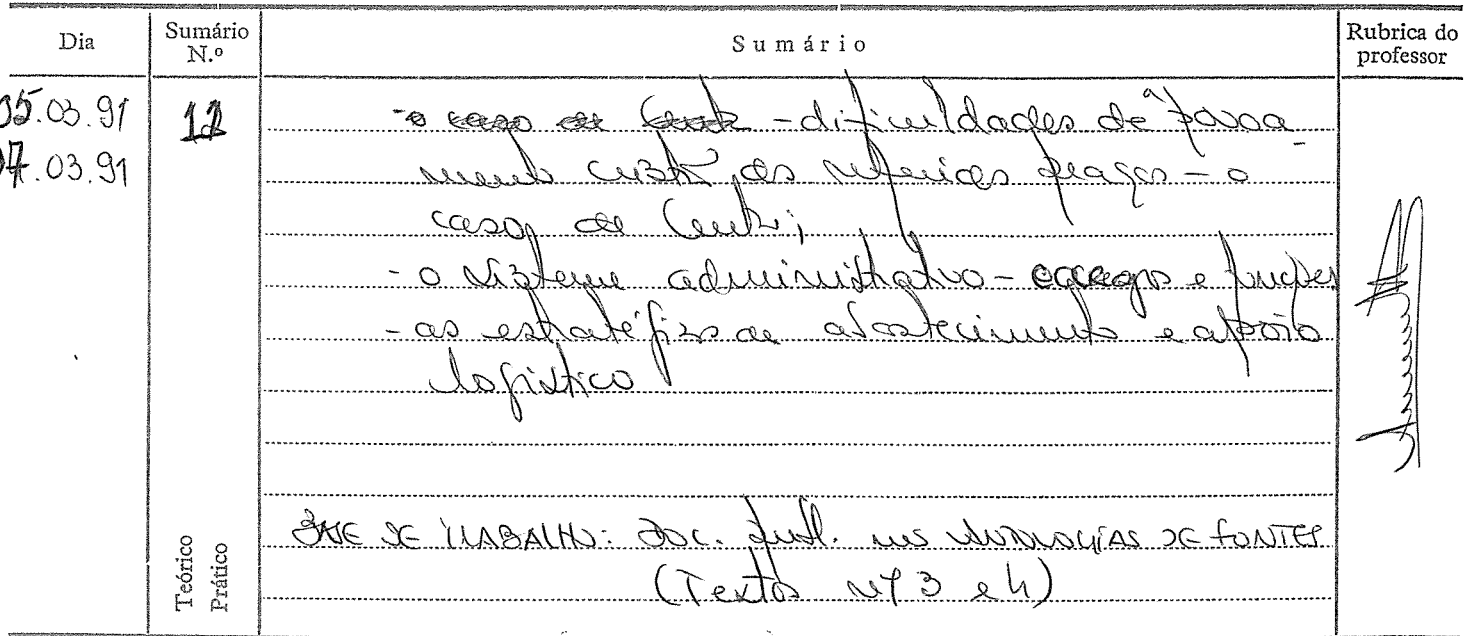 Dia
Sumário N.º
Sumário
Rubrica do professor
05.03.91
07.03.91
12
- o caso de Ceuta - dificuldades de povoa
mento cristão das referidas praças - o
caso de Ceuta;
- o sistema administrativo - cargos e funções
- as estratégias de abastecimento e apoio
logístico
BASE DE TRABALHO: Doc. publ. nas ANTOLOGIAS DE FONTES
(Textos nº 3 e 4)
Teórico
Prático